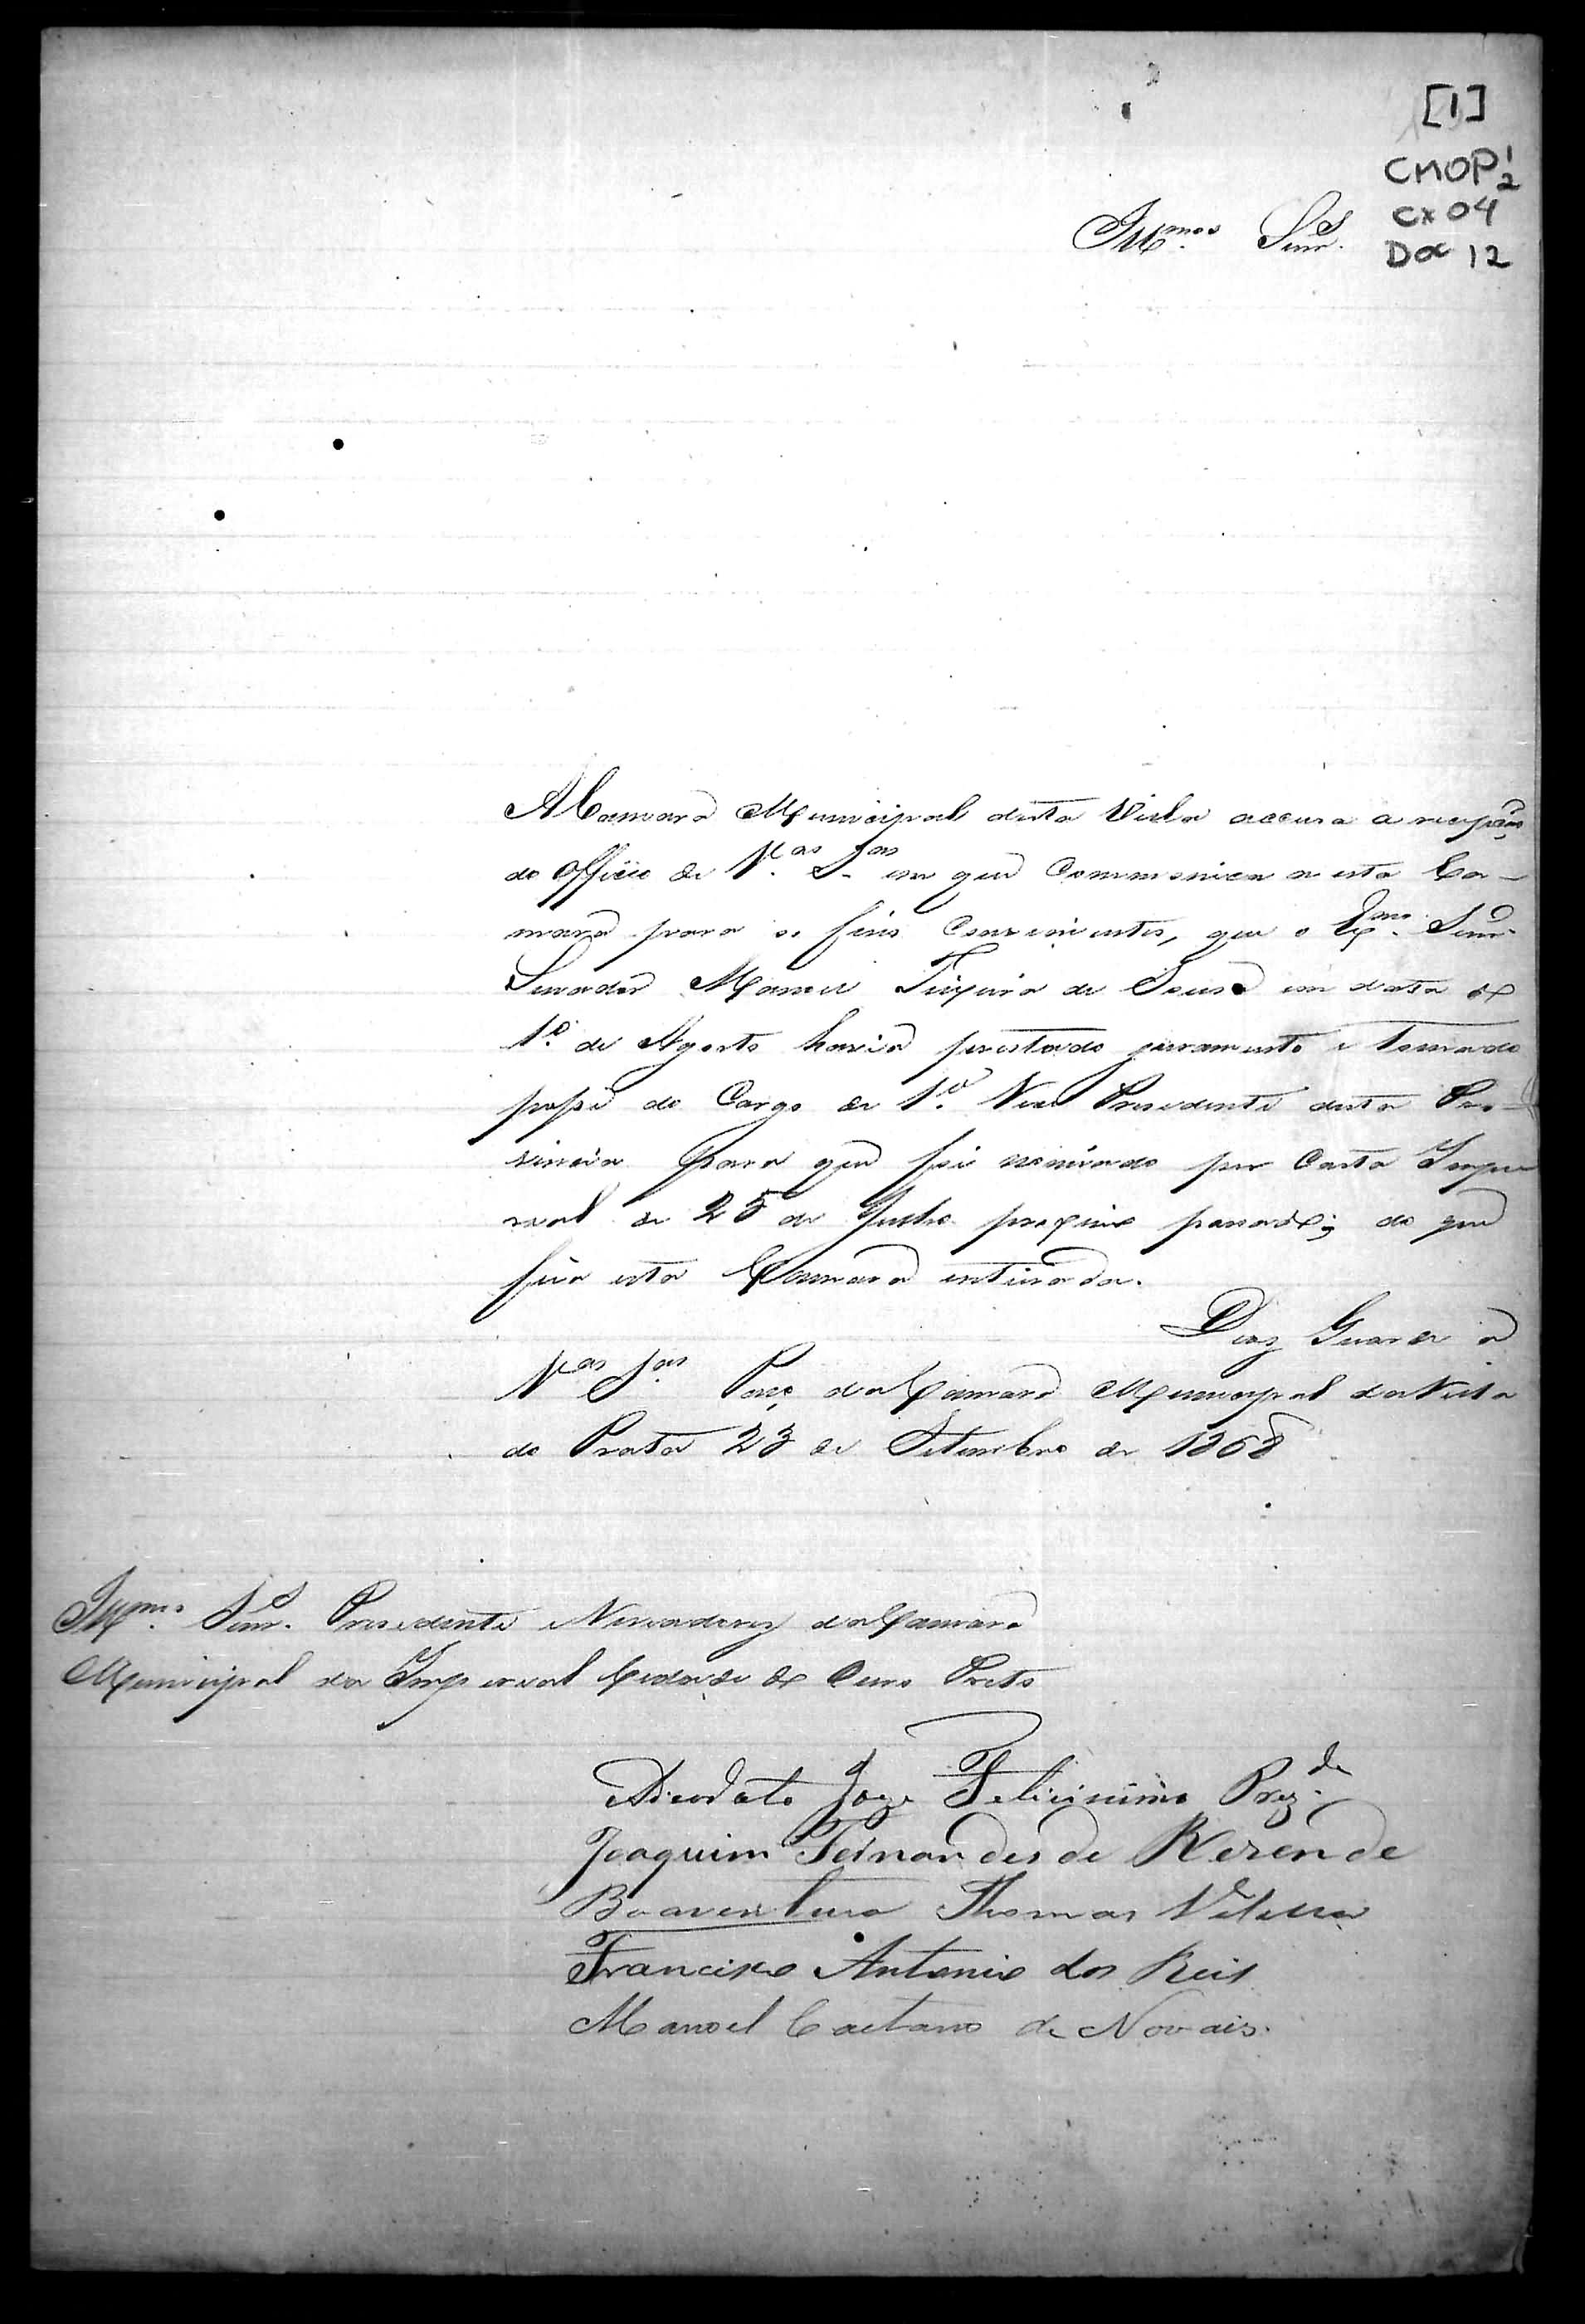 [1]
CMOP 1/2
CX 04
Doc 12
Illmos. Snrs.
A Camara Municipal desta Villa accusa a recepção
do Officio de V.as S.as em que Communica a esta Ca-
mara para os fins Convenientes, que o Exmo. Snr.
Senador Manoel Teixeira de Sousa em data de
1º de Agosto havia prestado juramento e tomado
posse do Cargo de 1º Vice Presidente desta Pro-
vincia para que foi nomiado por Carta Impe
rial de 25 de Julho proximo passado; do que
fica esta Camara inteirada.
Deos Guarde a
V.as S.as Paço da Camara Municipal da Villa
do Prata 23 de Setembro de 1868
Illmos. Snrs. Presidente e Vereadores da Camara
Municipal da Imperial Cidade de Ouro Preto
Deodato Joze Felicissimo Prez.de
Joaquim Fernandes de Rezende
Boaventura Thomas
Francisco Antonio dos Reis
Manoel Caetano de Novais.